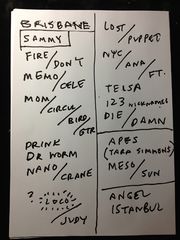 BRISBANE
SAMMY
FIRE/DON'T
MEMO/CELE
MOM/CIRCLE/BIRD/GTR
DRINK
DR WORM
NANO/CRANE
? "LOCO"/JUDY
LOST/PUPPET
NYC/ANA/FT.
TELSA
123 NICKNAMES
DIE/DAMN
APES
(TARA SIMMONS)
MESO/SUN
ANGEL
ISTANBUL